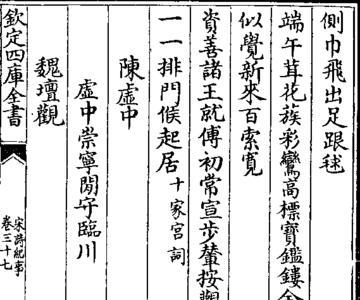 側巾飛出足跟毬
端午茸花族彩鸞高標寶鑑鏤金
似覺新來百索寬
資善諸王就傅初常宣步輦按觀
一一排門候起居十家宮詞
陳虛中
虛中崇寧閒守臨川
魏壇觀
欽定四庫全書
宋詩紀事
卷三十七